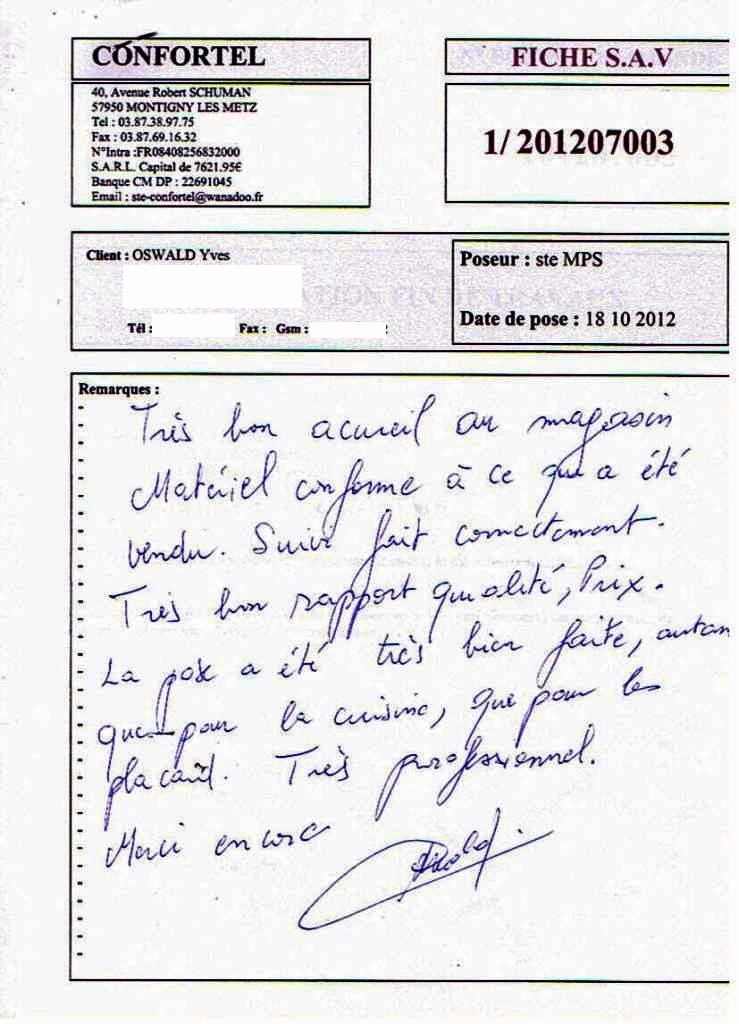 CONFORTEL
40, Avenue Robert SCHUMAN
57950 MONTIGNY LES METZ
Tel : 03.87.38.97.75
Fax : 03.87.69.16.32
N°Intra :FR08408256832000
S.A.R.L. Capital de 7621.95€
Banque CM DP : 22691045
Email : ste-confortel@wanadoo.fr
FICHE S.A.V
1/ 201207003
Client : OSWALD Yves
Tél : Fax : Gsm : :
Poseur : ste MPS
Date de pose : 18 10 2012
Remarques :
Très bon acueil au magasin
Matériel conforme à ce qui a été
vendu. Suivi fait correctement.
Très bon rapport qualité, Prix.
La pose a été très bien faite, autan
que pour la cuisine, que pour les
placard. Très professionnel.
Merci encore